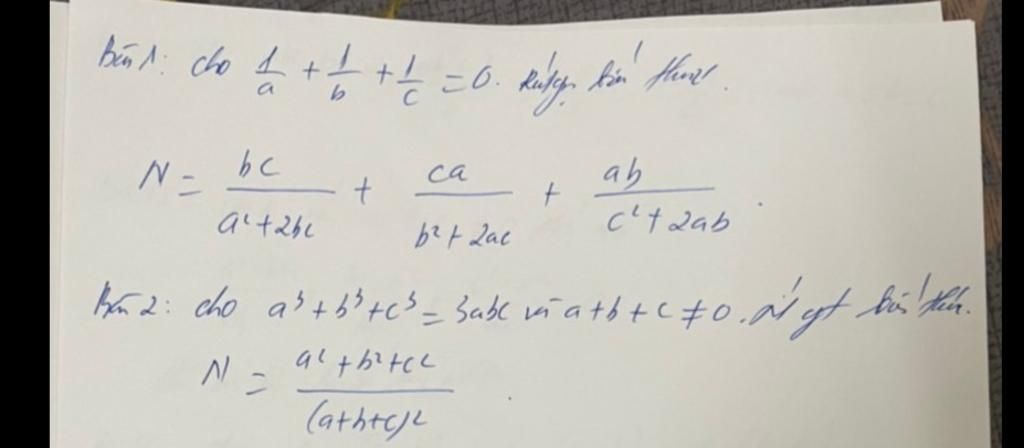 Bài 1: cho 1/a + 1/b + 1/c = 0. Rút gọn biểu thức.
N = bc/(a²+2bc) + ca/(b²+2ac) + ab/(c²+2ab).
Bài 2: cho a³+b³+c³ = 3abc và a+b+c ≠ 0. biểu thức.
N = (a²+b²+c²)/(a+b+c)²